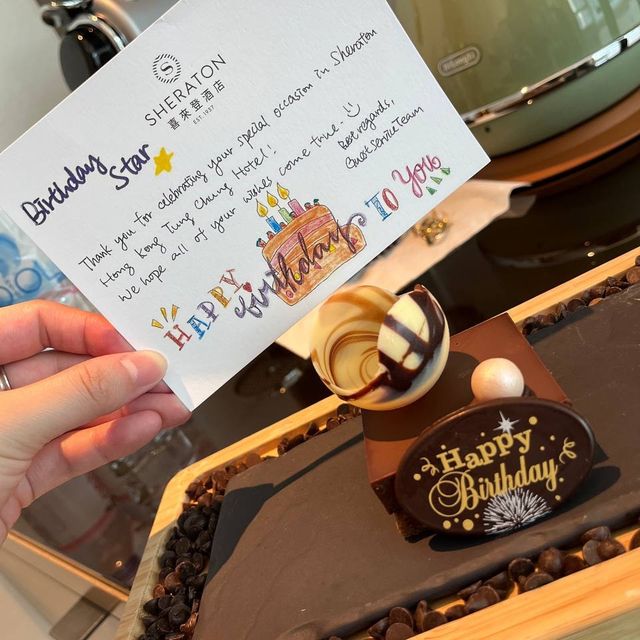 SHERATON
喜來登酒店
EST. 1937
Birthday
Star
Thank you for celebrating your special occasion in Sheraton
Hong Kong Tung Chung Hotel!
We hope all of your wishes come true~
Best regards,
Guest Service Team
HAPPY birthday TO YOU
DeLonghi
Happy
Birthday